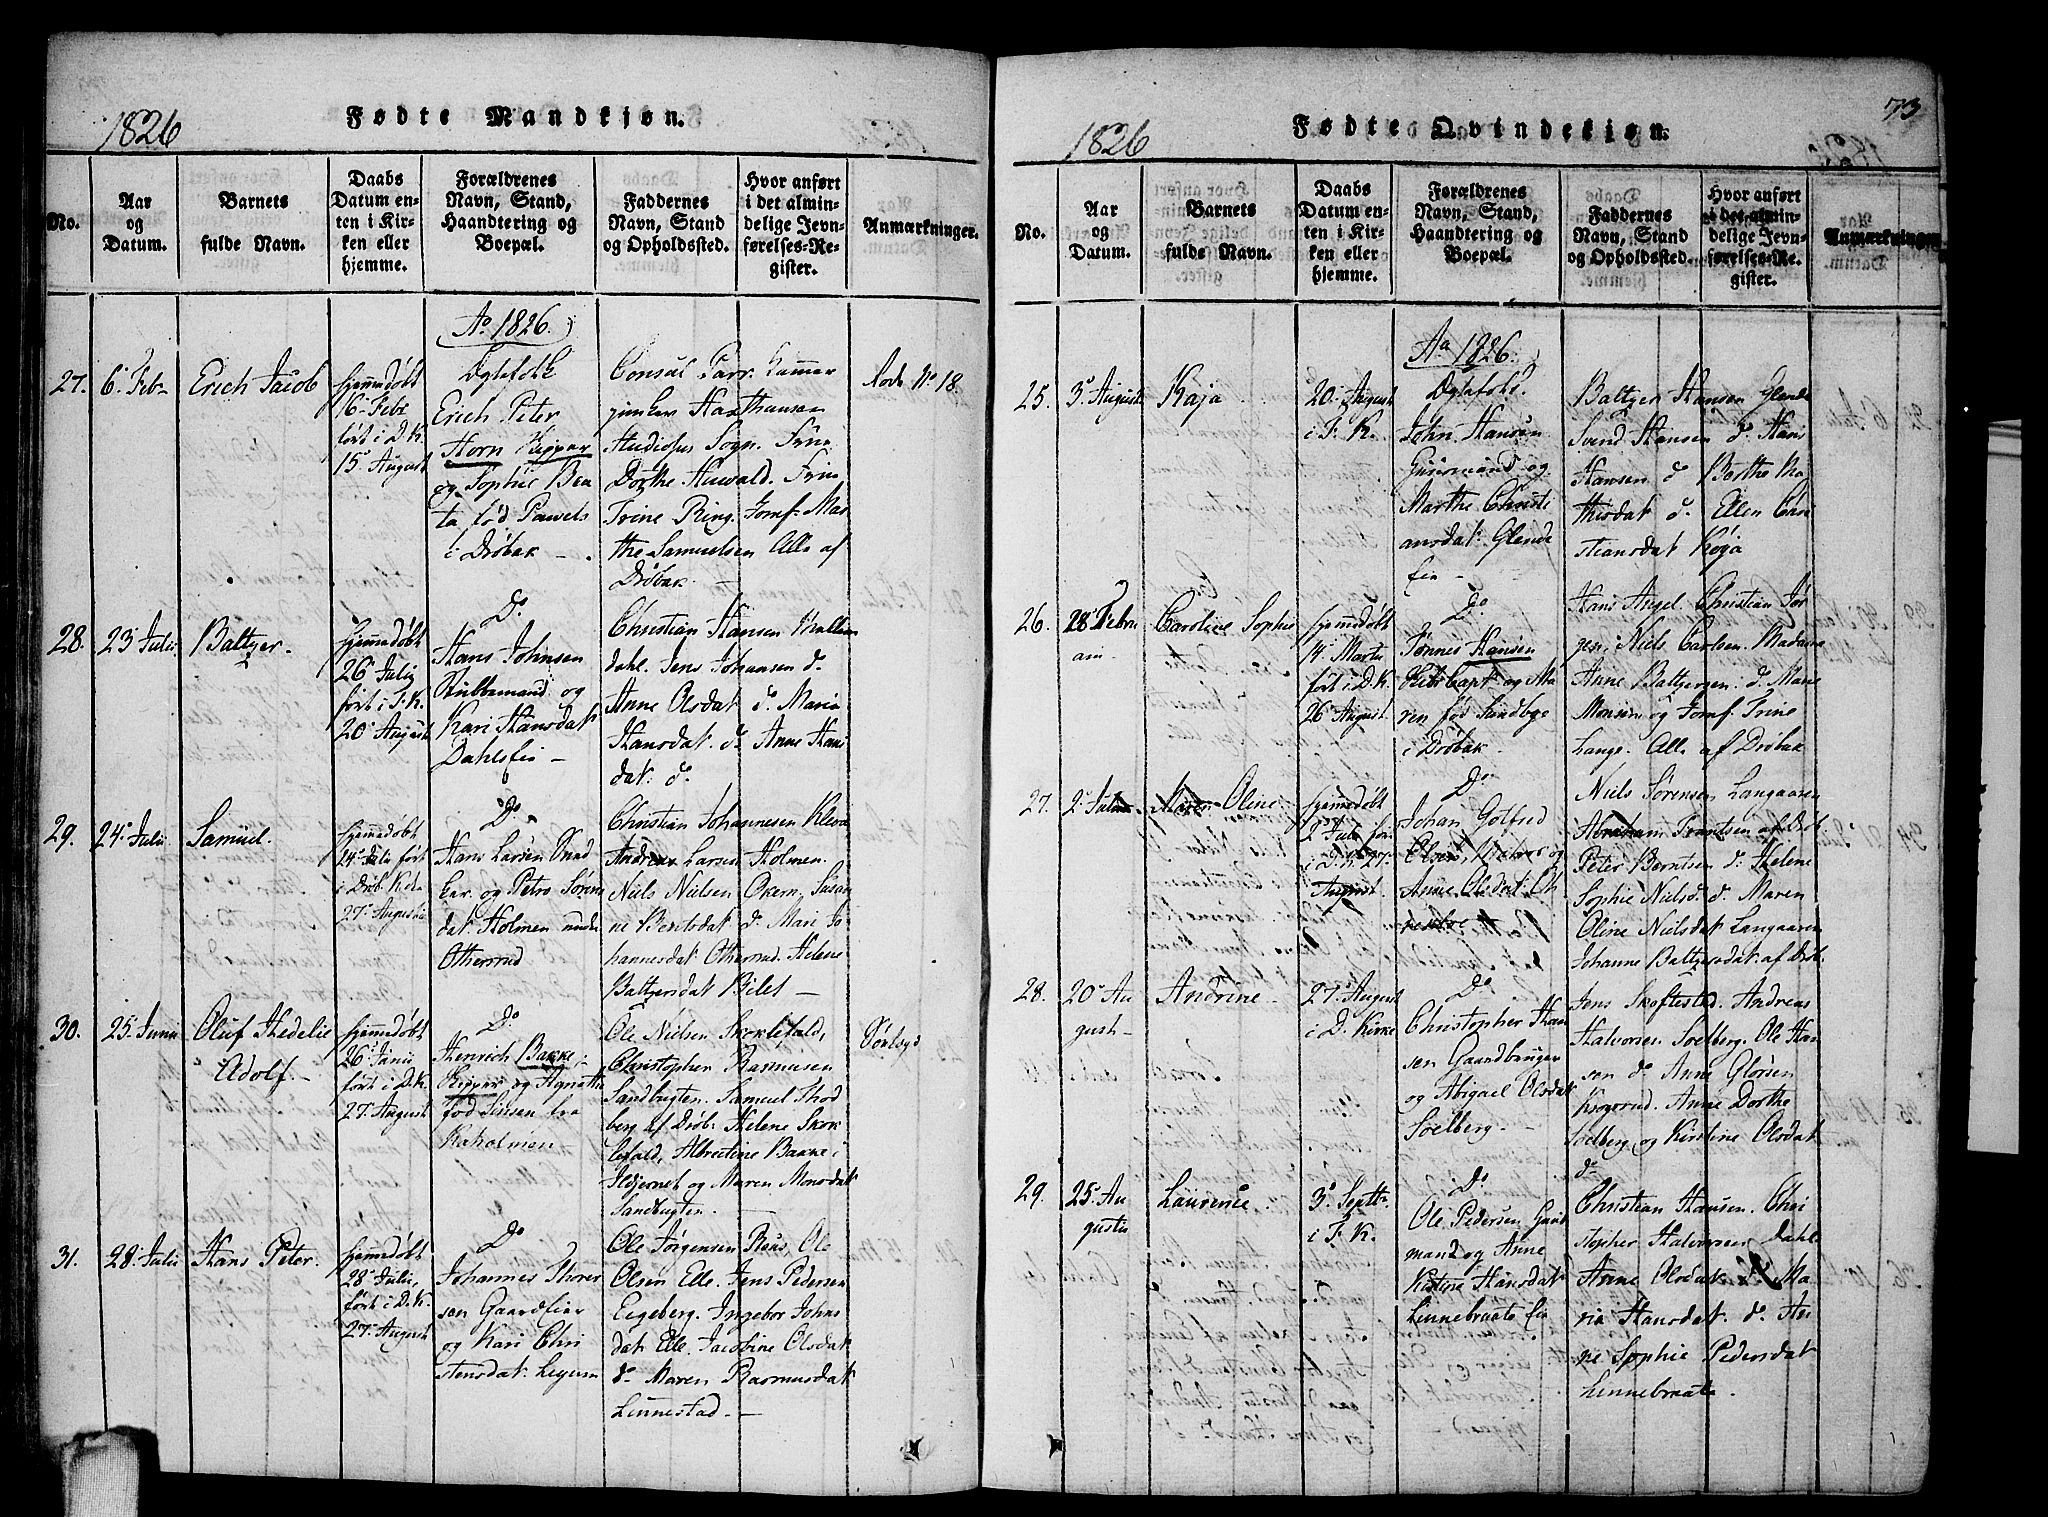 1826
Fødte Mandkjøn.
No.
Aar og Datum.
Barnets fulde Navn.
Daabs Datum enten i Kirken eller hjemme.
Forældrenes Navn, Stand, Haandtering og Boepæl.
Faddernes Navn, Stand og Opholdssted.
Hvor anført i det almindelige Jevnførelses-Register.
Anmærkninger.
Ao 1826.
27.
6 Febr
Erich Jacob
hjemmedøbt
16 Febr
ført i D. K.
15 August
Ægtefolk
Erich Peter
Horn Skipper
og Sophie Bea
ta fød Pawels
i Drøbak
Consul Parr. Kammer
junker Harthausen
Sogn. Frue
Dorthe Fru
Trine Ring. Jomf. Mar
the Samuelsen Alle af
Drøbak
No 18.
28.
23 Julii
Baltzer.
hjemmedøbt
26 Julij
ført i F. K.
20 August
Do
Hans Johnsen
Stubbemand og
Kari Hansdat.
Dahlseie
Christian Hansen
dahl. Jens Johansen do
Anne Olsdat. do Marie
Hansdat. do Anne Hans
dat. do
29.
24 Julii
Samuel.
hjemmedøbt
24 Julii ført
i Drøb. K. d.
27 August
Do
Hans Larsen Sned
ker. og Petro Søren
dat. Holmen under
Ottersrud
Christian Johannesen
Andreas Larsen Holmen.
Niels Nielsen Okern. Susan
ne Berntsdat. do Mari Jo
hannesdat. Ottersrud. Helene
Baltzersdat. Bilet
30.
25 Junii
Oluf Hedelie
Adolf.
hjemmedøbt
26 Junii
ført i D. K.
27 August
Do
Henrich Bakke
Skipper og Agnethe
fød Simsen
Kaholmen
Ole Nielsen Skoklefald,
Christopher Rasmusen
Sandbugten. Samuel Thod
berg af Drøb. Helene Skok
lefald, Albrectine Bakke i
Ildjernet og Maren Monsdat.
Sandbugten.
31.
28 Julii
Hans Peter.
hjemmedøbt
28 Julii,
ført i D. K.
27 August
Do
Johannes Thorer
sen Gaardeier
og Kari Chri
stensdat.
Ole Jørgensen Røis, Ole
Olsen Elle. Jens Pedersen
Eegeberg. Ingebor Johns
dat. Elle. Jacobine Olsdat.
do Maren Rasmusdat.
Linnestad.
73
1826
Fødte Qvindekjøn.
No.
Aar og Datum.
Barnets fulde Navn.
Daabs Datum enten i Kirken eller hjemme.
Forældrenes Navn, Stand, Haandtering og Boepæl.
Faddernes Navn, Stand og Opholdssted.
Hvor anført i det almindelige Jevnførelses-Register.
Anmærkninger.
Aa 1826.
25.
3 August
Kaja
20 August
i F. K.
Ægtefolk.
John Hansen
Huusmand og
Marthe Christi
ansdat. Glende
eie
Baltzer Hansen Glende
Svend Hansen do Hans
Hansen do Berthe Ma
thisdat. do. Ellen Chri
stiansdat. Køja
26.
28 Febru
arii
Caroline Sophie
hjemmedøbt
14 Martii
ført i D. K.
26 August.
Do
Tønnes Hansen
og Ma
ren fød Sundbye
i Drøbak.
Hans Angel. Christian Jør
gen. Niels Carlsen. Madame
Anne Baltzersen. do Marie
Monsen og Jomf. Trine
Lange. Alle af Drøbak
27.
2 Julii
Maren Oline
hjemmedøbt
2 Julii før
i D. K. 27
August
Do
Johan Gotfred
Olsen, og
Anne Olsdat.
Niels Sørensen Langaaren
Abraham Frantsen af Drøb.
Peter Berntsen do Helene
Sophie Nielsd. do. Maren
Oline Nielsdat. Langaaren
Johanne Baltzersdat. af Drøb.
28.
20 Au
gusti
Andrine
27 August
i D. Kirke
Do
Christopher Han
sen Gaardbruger
og Abigael Olsdat
Soelberg
Jens Skoftested. Andreas
Halvorsen Soelberg. Ole Han
sen do Anne Glørsen
Krogsrud. Anne Dorthe
Soelberg og Kirstine Olsdat.
do
29.
25 Au
gusti
Laurense.
3 Septbr
i F. K.
Do
Ole Pedersen
mand og Anne
Kistine Hansdat.
Linnebraate eie
Christian Hansen. Chri
stopher Halvorsen Dahl
Anne Olsdat. do Ma
rie Hansdat. do An
ne Sophie Pedersdat.
Linnebraate.